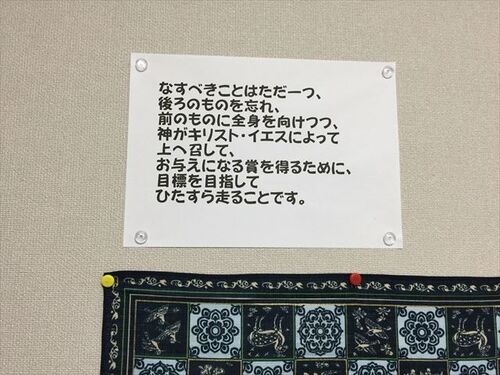 なすべきことはただ一つ、
後ろのものを忘れ、
前のものに全身を向けつつ、
神がキリスト・イエスによって
上へ召して、
お与えになる賞を得るために、
目標を目指して
ひたすら走ることです。